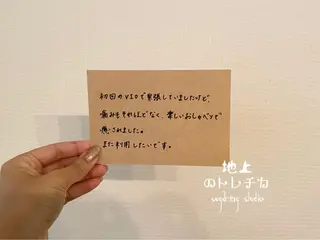 初回のVIOで緊張していましたけど、
痛みもそれほどなく、楽しいおしゃべりで
癒されました。
また利用したいです。
地上
のトレチカ